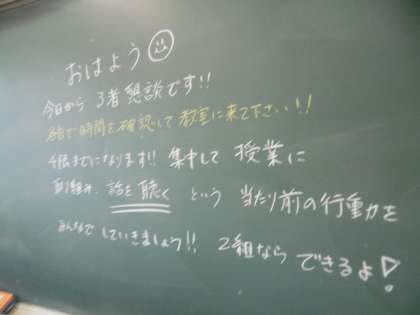 おはよう
今日から 3者懇談です!!
各自で時間を確認して教室に来て下さい!!
4限までになります!! 集中して 授業に
取り組み、話を聴く という 当たり前の行動を
みんなで していきましょう!! 2組なら できるよ!